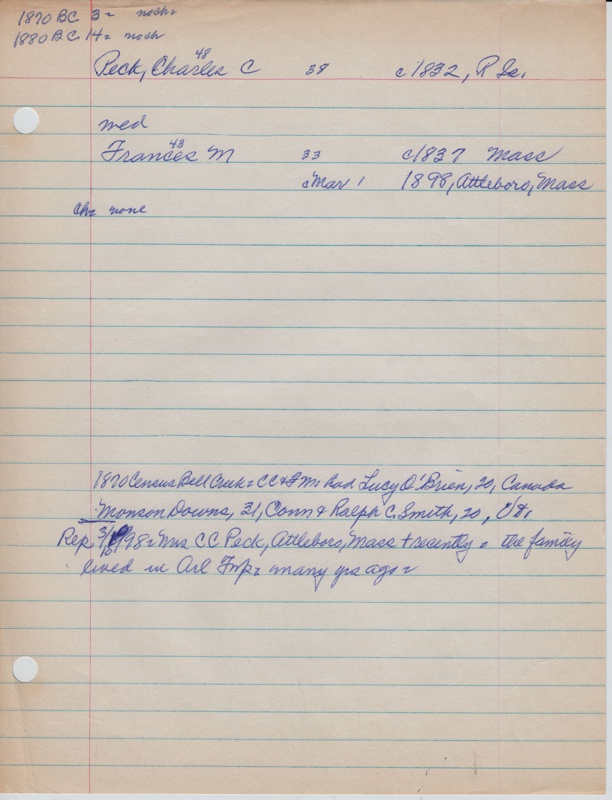 1870 BC 3= noch=
1880 BC 14= noch
48
Peck, Charles C 38 c1832, R Is.
med
43
Frances M 33 c1837 Mass
cMar 1 1898, Attleboro, Mass
ch= none
1870 Census Bell Creek= CC & FM: had Lucy O'Brien, 20, Canada
Monson Downs, 21, Conn & Ralph C. Smith, 20,
Rep 3/ /98= Mrs CC Peck, Attleboro, Mass + recently. the family
lived in Arl Twp= many yrs ago=